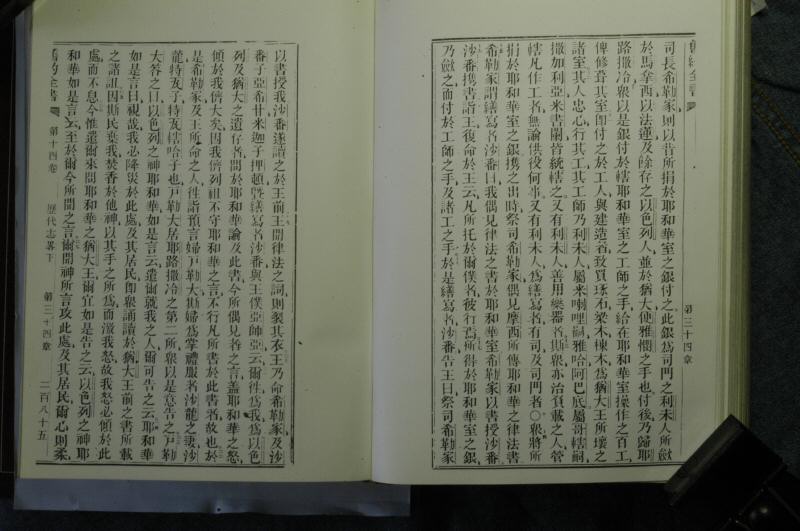 舊約全書
第三十四章
司長希勒家則以昔所捐於耶和華室之銀付之此銀爲司門之利未人所斂
於馬拿西以法蓮及餘存之以色列人並於猶大便雅憫之手也付後乃歸耶
路撒冷衆以是銀付於轄耶和華室之工師之手給在耶和華室操作之百工
俾修葺其室卽付之於工人與建造者致買琢石梁木棟木爲猶大王所壞之
諸室其人忠心行其工其工師乃利未人屬米喇哩嗣雅哈阿巴底屬哥轄嗣
撒加利亞米書闌皆統轄之又有利未人善用樂器者斯衆亦治負載之人管
轄凡作工者無論供役何事又有利未人爲繕寫者有司及司門者○衆將所
捐於耶和華室之銀攜之出時祭司希勒家偶見摩西所傳耶和華之律法書
希勒家謂繕寫者沙番曰我偶見律法之書於耶和華室希勒家以書授沙番
沙番攜書詣王復命於王云凡所托於爾僕者彼行焉所得於耶和華室之銀
乃斂之而付於工師之手及諸工之手於是繕寫者沙番告王曰祭司希勒家
以書授我沙番遂讀之於王前王聞律法之詞則裂其衣王乃命希勒家及沙
番子亞希甘米迦子押頓曁繕寫者沙番與王僕亞帥亞云爾往爲我爲以色
列及猶大之遺存者問於耶和華論及此書今所偶見者之言蓋耶和華之怒
傾於我儕大矣因我儕列祖不守耶和華之言不行凡所書於此書者故也於
是希勒家及王所命之人往詣預言婦戸勒大斯婦爲掌禮服者沙龍之妻沙
龍特瓦子特瓦轄哈子也戸勒大居耶路撒冷之第二所衆以是意告之戸勒
大答之曰以色列之神耶和華如是言云遣爾就我之人爾可告之云耶和華
如是言曰視哉我必降災於此處及其居民卽衆誦讀於猶大王前之書所載
之諸詛因斯民棄我焚香於他神以其手之所爲而激我怒故我怒必傾於此
處而不息今惟遣爾來問耶和華之猶大王爾宜如是告之云以色列之神耶
和華如是言云至於爾今所聞之言爾聞神所言攻此處及其居民爾心則柔
舊約全書
第十四卷
歷代志畧下
第三十四章
二百八十五